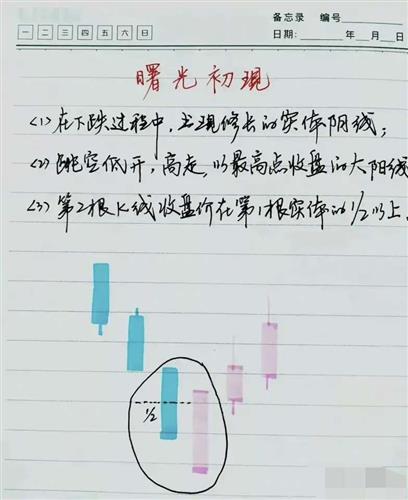 备忘录 编号
一 二 三 四 五 六 日
日期: 年 月 日
曙光初现
(1) 在下跌过程中,出现修长的实体阴线;
(2) 跳空低开,高走,以最高点收盘的大阳线
(3) 第2根K线收盘价在第1根实体的1/2以上.
1/2